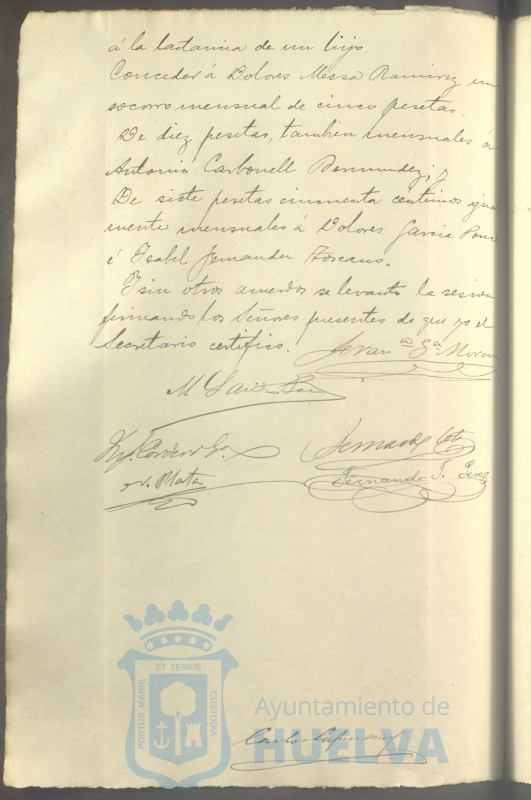 á la lactancia de un hijo.
Conceder á Dolores Mesa Ramirez un
socorro mensual de cinco pesetas.
De diez pesetas, tambien mensuales á
Antonio Carbonell Bermudez; y
De siete pesetas cincuenta centimos igual
mente mensuales á Dolores Garcia Ponce
é Isabel Fernandez Toscano.
Y sin otros acuerdos se levantó la sesion
firmando los Señores presentes de que yo el
Secretario certifico.
Fernando T. Perez
PORTUS MARIS
ET TERRÆ
CUSTODIA
Ayuntamiento de
HUELVA